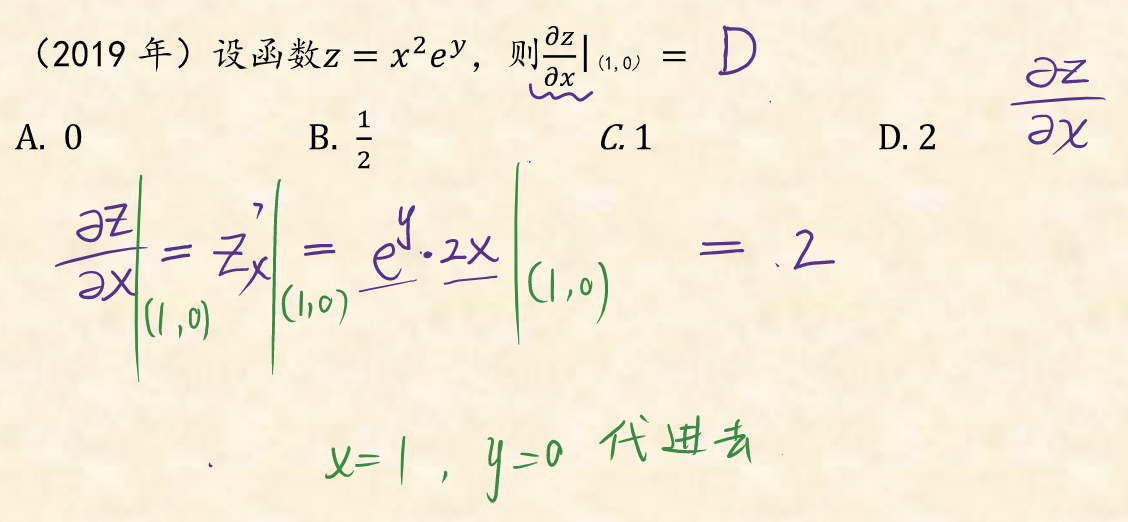 （2019 年）设函数z = x²eʸ，则∂z/∂x|₍₁,₀₎ = D
∂z/∂x
A. 0 B. 1/2 C. 1 D. 2
∂z/∂x|(1,0) = z'ₓ|(1,0) = eʸ·2x|(1,0) = 2
x=1，y=0 代进去